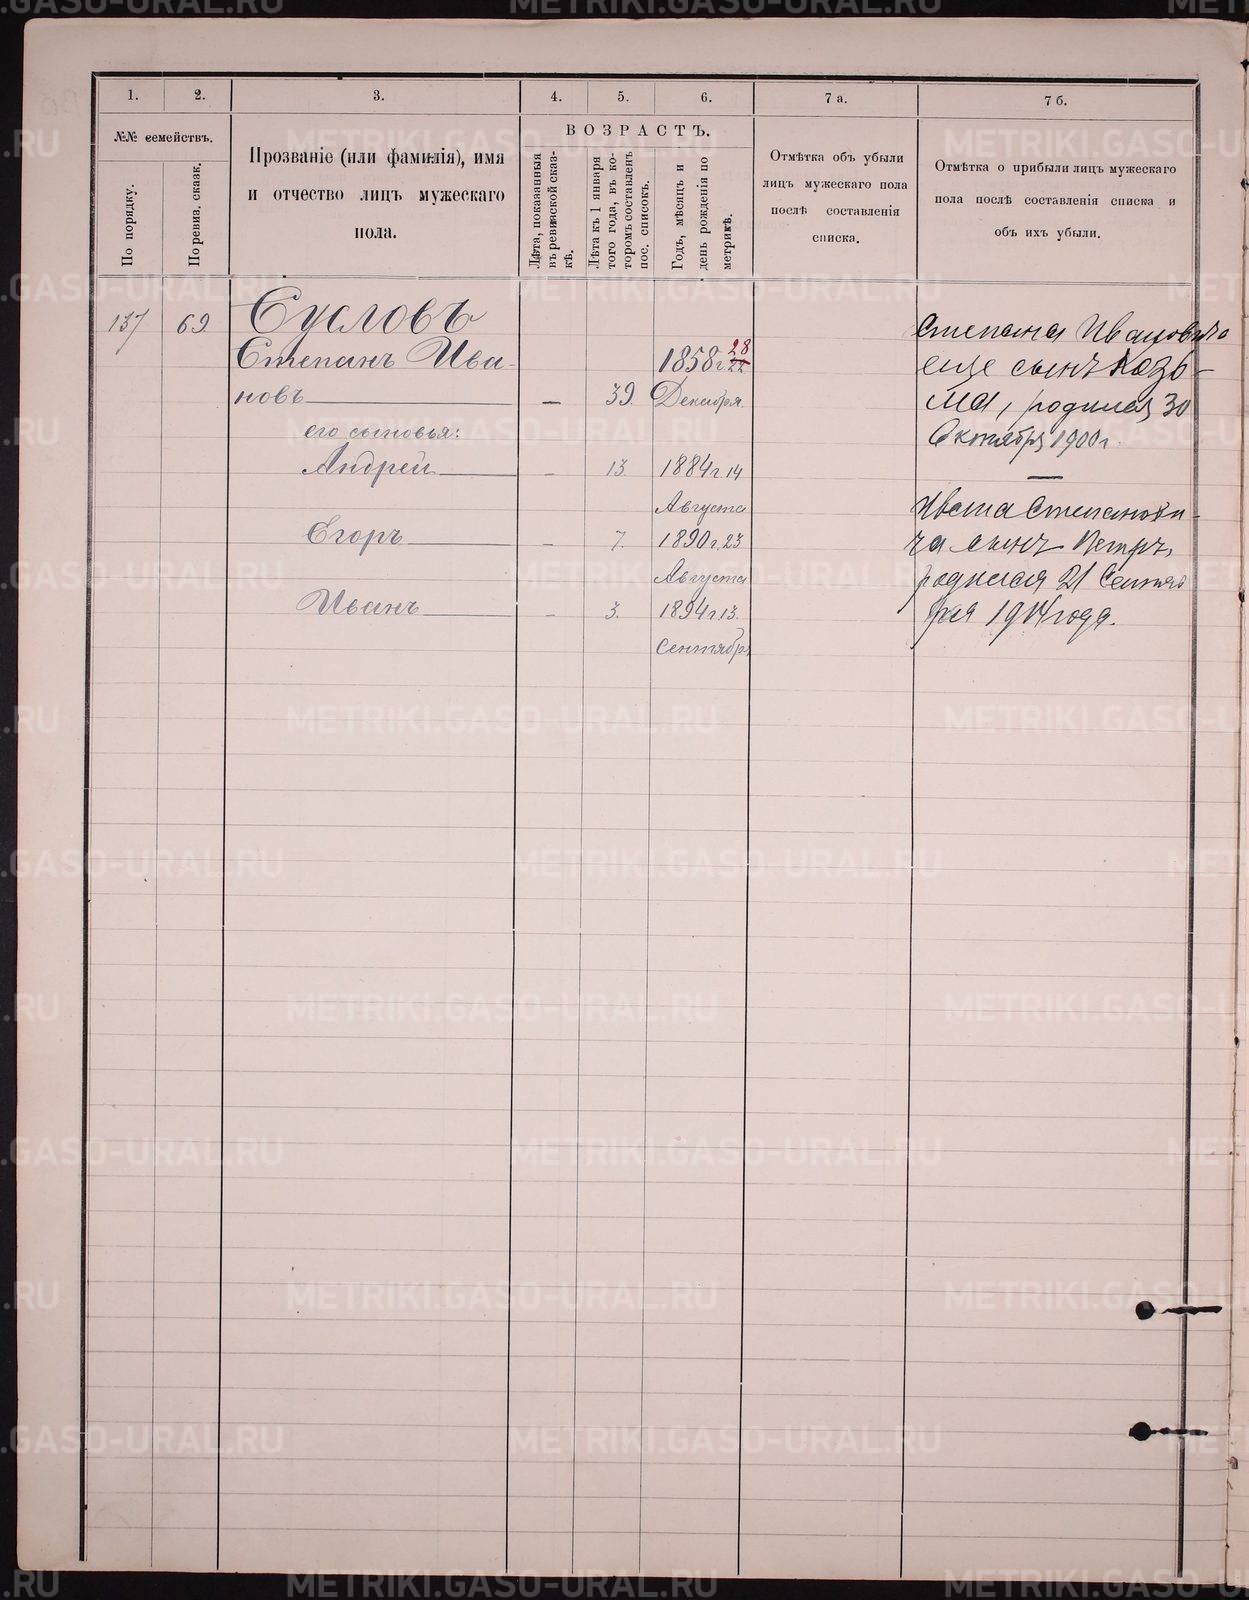 1.
2.
3.
4.
5.
6.
7 а.
7 б.
№№ семействъ.
По порядку.
По ревиз. сказк.
Прозваніе (или фамилія), имя
и отчество лицъ мужескаго
пола.
ВОЗРАСТЪ.
Лѣта, показанныя
въ ревизской сказ-
кѣ.
Лѣта къ 1 января
того года, въ ко-
торомъ составленъ
пос. списокъ.
Годъ, мѣсяцъ и
день рожденія по
метрикѣ.
Отмѣтка объ убыли
лицъ мужескаго пола
послѣ составленія
списка.
Отмѣтка о прибыли лицъ мужескаго
пола послѣ составленія списка и
объ ихъ убыли.
137 69 Сусловъ
Степанъ Ива- 1858 г. 22 28
новъ — 39. Декабря.
его сыновья:
Андрей — 13 1884 г. 14
Августа
Егоръ — 7. 1890 г. 23
Августа
Иванъ — 3. 1894 г. 13.
Сентября
Степана Ивановича
еще сынъ Козь-
ма, родился 30
Октября 1900 г.
Ивана Степанови-
ча сынъ Петръ,
родился 21 Сентяб
ря 1914 года.
METRIKI.GASO-URAL.RU